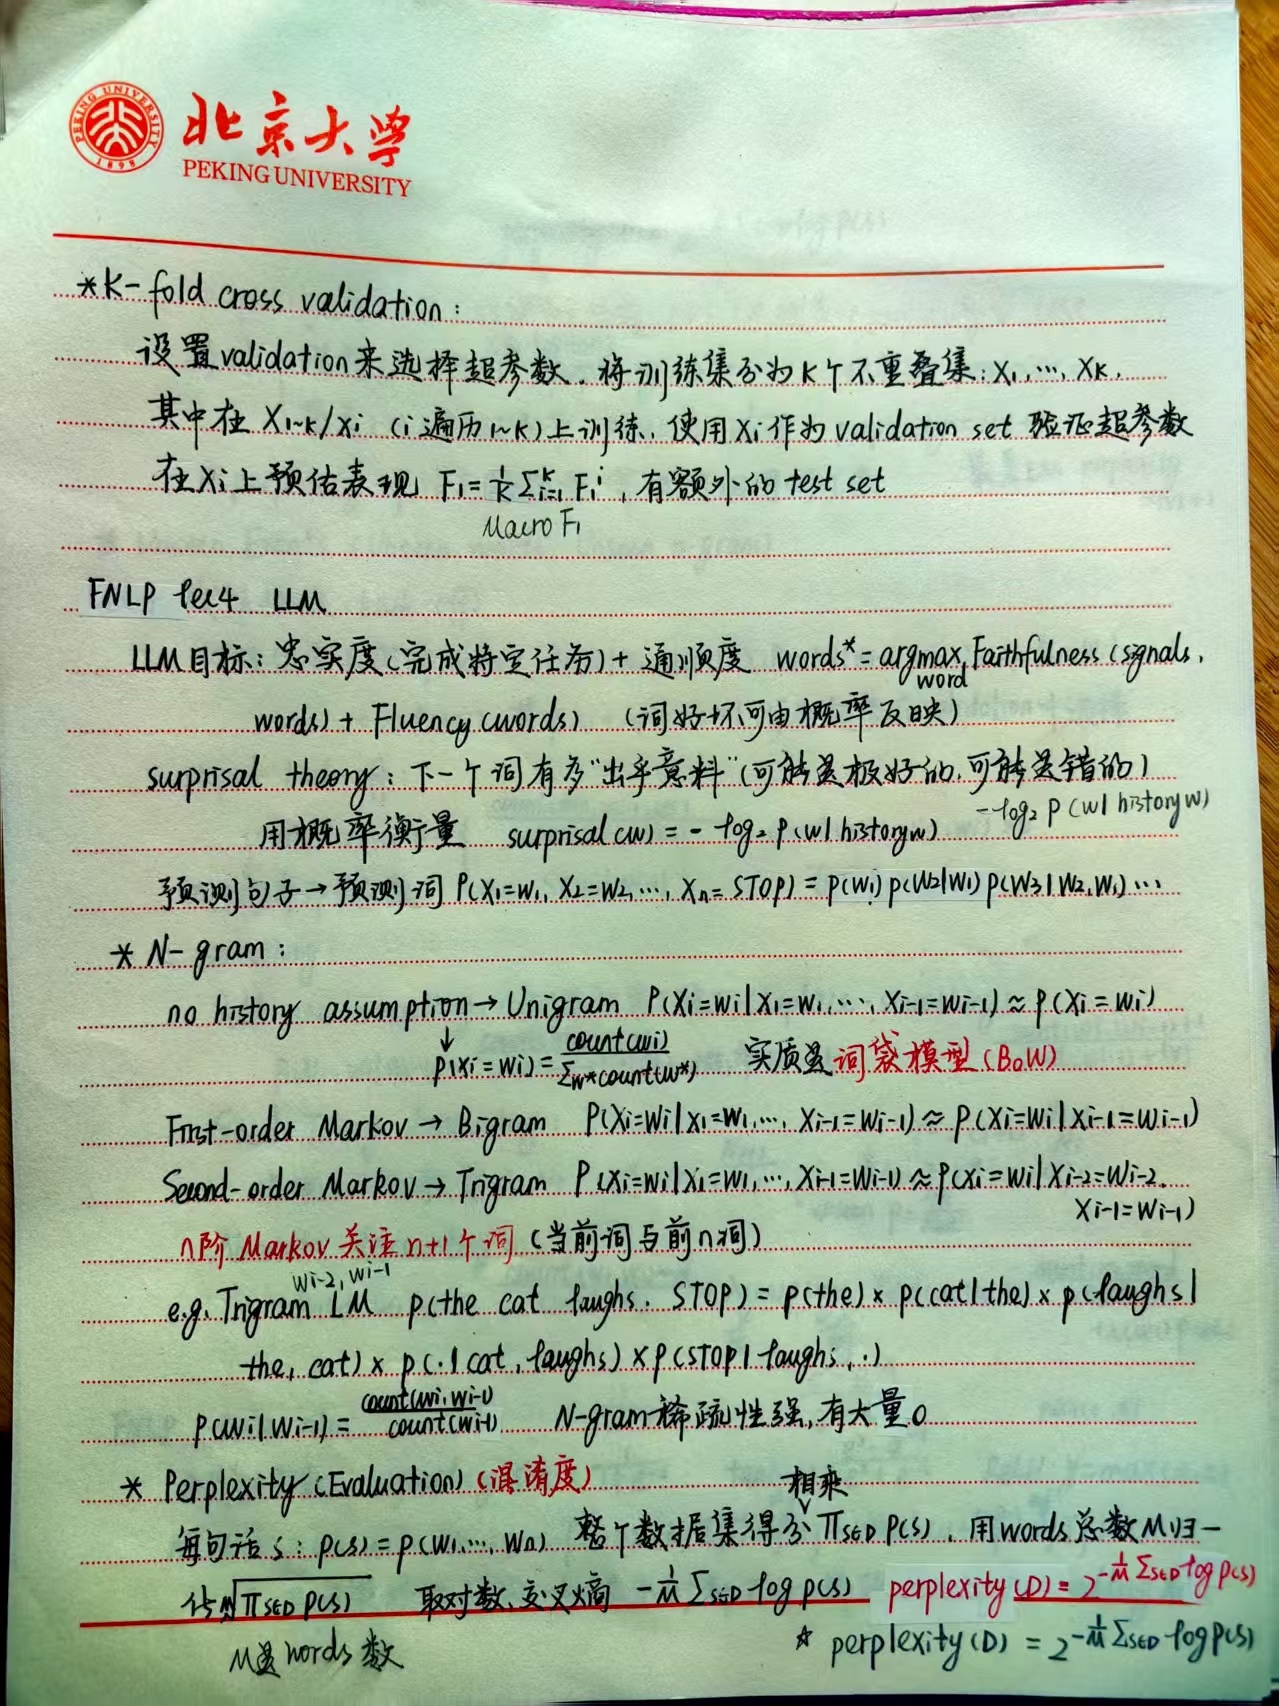 PEKING UNIVERSITY 1898
北京大学
PEKING UNIVERSITY
*K-fold cross validation:
设置validation来选择超参数.将训练集分为K个不重叠集:X₁,…,Xₖ,
其中在 X₁~ₖ/Xᵢ (i遍历1~K)上训练,使用Xᵢ作为validation set 验证超参数
在Xᵢ上预估表现 F₁=1/K Σᵢ₌₁ᴷ F₁ⁱ,有额外的test set
Macro F₁
FNLP lec4 LLM
LLM目标:忠实度(完成特定任务)+通顺度 words*=argmax_word Faithfulness(signals,
words)+Fluency(words) (词好坏可由概率反映)
surprisal theory:下一个词有多"出乎意料"(可能是极好的,可能是错的)
-log₂ P(w|history w)
用概率衡量 surprisal(w)=-log₂ P(w|history w)
预测句子→预测词 P(X₁=w₁, X₂=w₂,…, Xₙ=STOP)=P(w₁)P(w₂|w₁)P(w₃|w₂,w₁)…
* N-gram:
no history assumption→Unigram P(Xᵢ=wᵢ|X₁=w₁,…,Xᵢ₋₁=wᵢ₋₁)≈P(Xᵢ=wᵢ)
↓
P(Xᵢ=wᵢ)=count(wᵢ)/Σw*count(w*) 实质是词袋模型(BoW)
First-order Markov→Bigram P(Xᵢ=wᵢ|X₁=w₁,…,Xᵢ₋₁=wᵢ₋₁)≈P(Xᵢ=wᵢ|Xᵢ₋₁=wᵢ₋₁)
Second-order Markov→Trigram P(Xᵢ=wᵢ|X₁=w₁,…,Xᵢ₋₁=wᵢ₋₁)≈P(Xᵢ=wᵢ|Xᵢ₋₂=wᵢ₋₂,
Xᵢ₋₁=wᵢ₋₁)
n阶Markov关注n+1个词(当前词与前n词)
wᵢ₋₂,wᵢ₋₁
e.g. Trigram LM p(the cat laughs. STOP)=p(the)×p(cat|the)×p(laughs|
the, cat)×p(.|cat, laughs)×p(STOP|laughs, .)
P(wᵢ|wᵢ₋₁)=count(wᵢ,wᵢ₋₁)/count(wᵢ₋₁) N-gram稀疏性强,有大量0
* Perplexity(Evaluation)(混淆度)
相乘
每句话s:p(s)=p(w₁,…,wₙ) 整个数据集得分∏s∈D P(s),用words总数M归一
√∏s∈D P(s) 取对数,交叉熵 -1/M Σs∈D log p(s) perplexity(D)=2^(-1/M Σs∈D log p(s))
M是words数
☆ perplexity(D)=2^(-1/M Σs∈D log p(s))